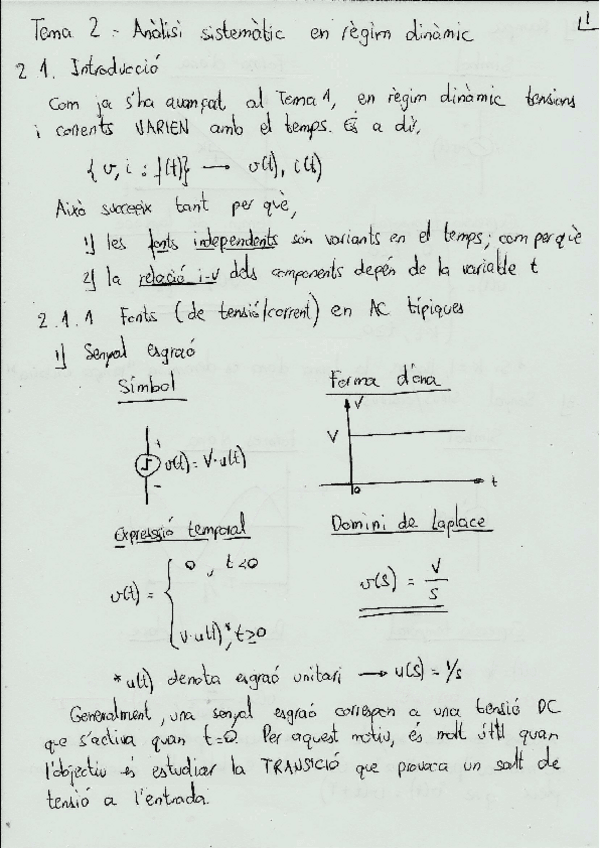 1
Tema 2 - Anàlisi sistemàtic en règim dinàmic
2.1. Introducció
Com ja s'ha avançat al Tema 1, en règim dinàmic tensions
i corrents VARIEN amb el temps. És a dir,
{v, i : f(t)} → v(t), i(t)
Això succeeix tant per què,
1) les fonts independents són variants en el temps; com per què
2) la relació i-v dels components depèn de la variable t
2.1.1 Fonts (de tensió/corrent) en AC típiques
1) Senyal esgraó
Símbol
Forma d'ona
V
V
t
0
+
v(t) = V·u(t)
-
Expressió temporal
Domini de Laplace
v(t) = { 0 , t<0
V·u(t)*, t≥0
v(s) = V/s
* u(t) denota esgraó unitari → u(s) = 1/s
Generalment, una senyal esgraó correspon a una tensió DC
que s'activa quan t=0. Per aquest motiu, és molt útil quan
l'objectiu és estudiar la TRANSICIÓ que provoca un salt de
tensió a l'entrada.